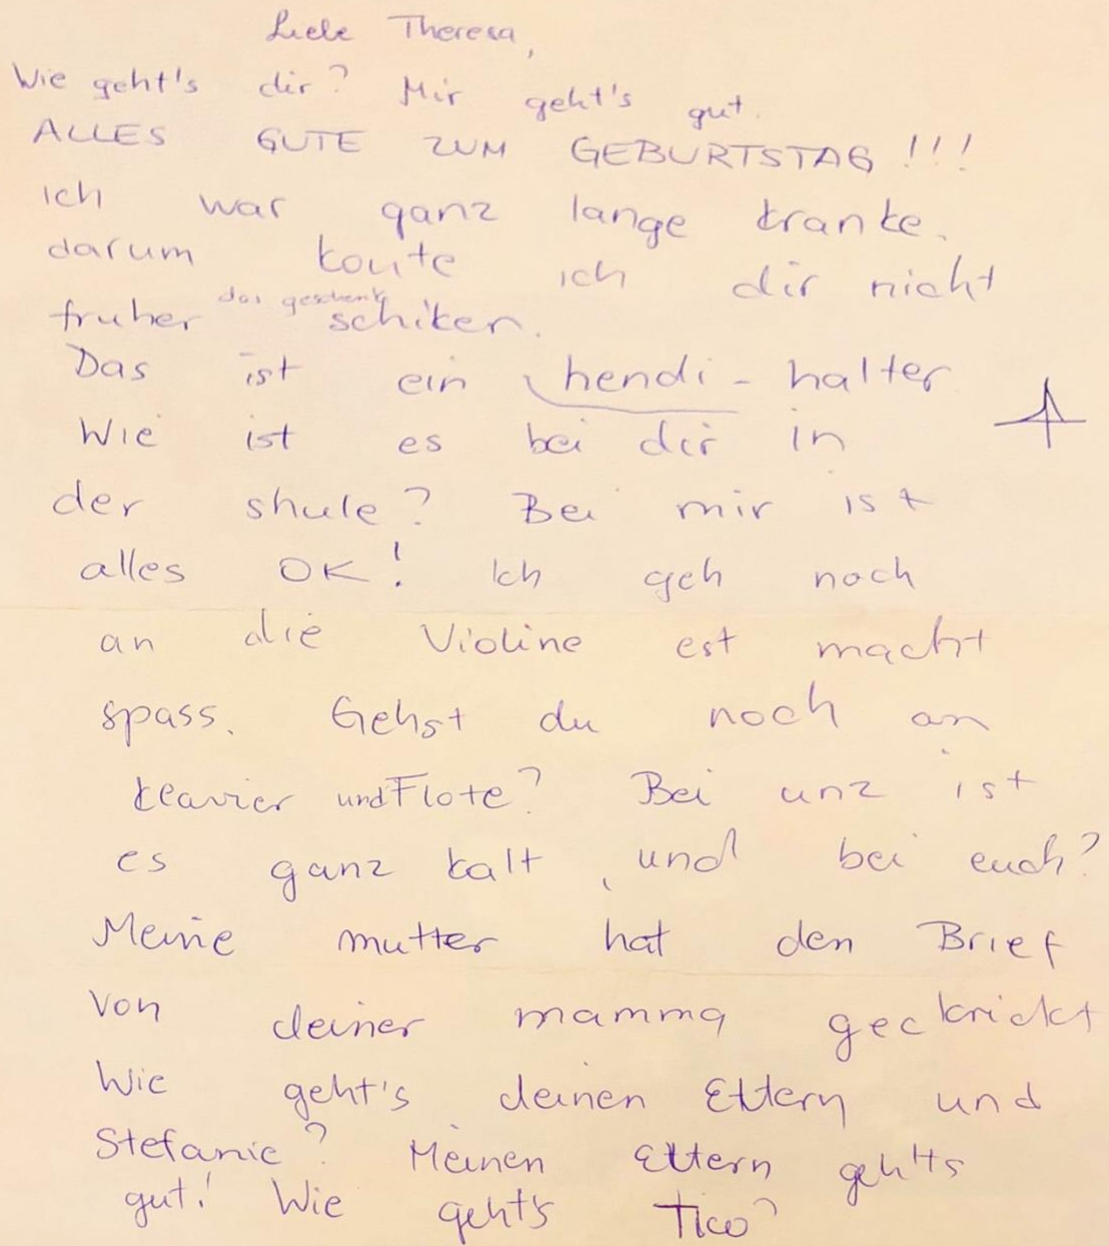 Liebe Theresa,
Wie geht's dir? Mir geht's gut.
ALLES GUTE ZUM GEBURTSTAG !!!
ich war ganz lange kranke.
darum konte ich dir nicht
fruher das geschenk schiken.
Das ist ein hendi-halter
Wie ist es bei dir in
der shule? Bei mir ist
alles OK! Ich geh noch
an die Violine est macht
spass. Gehst du noch an
klavier und Flote? Bei unz ist
es ganz kalt, und bei euch?
Meine mutter hat den Brief
von deiner mamma geckrickt
Wie geht's deinen Eltern und
Stefanie? Meinen Eltern geh'ts
gut! Wie geht's Tico?